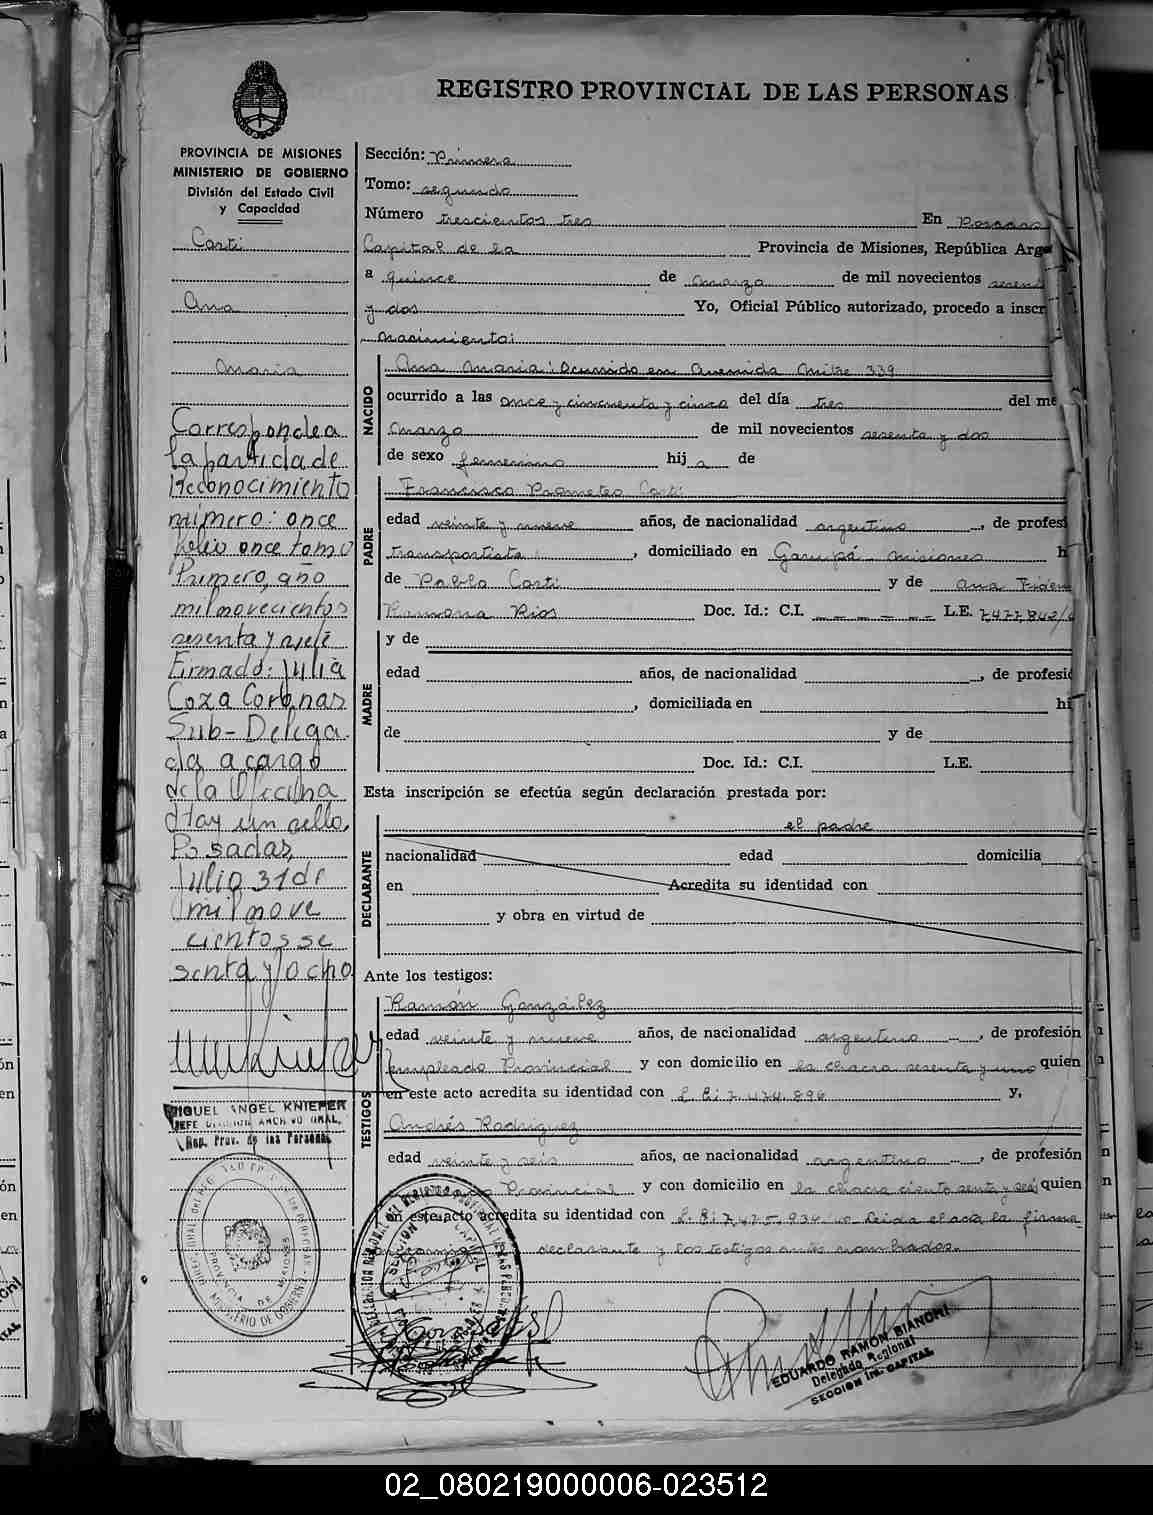 REGISTRO PROVINCIAL DE LAS PERSONAS
PROVINCIA DE MISIONES
MINISTERIO DE GOBIERNO
División del Estado Civil
y Capacidad
Corti
Ana
Maria
Corresponde a
la partida de
Reconocimiento
número: once
folio once tomo
Primero, año
mil novecientos
sesenta y siete
Firmado: Julia
Coza
Sub-Delega
da a cargo
de la Oficina
Hay un sello.
Posadas,
Julio 31 de
mil nove
cientos se
senta y ocho
MIGUEL ANGEL KNIEPER
JEFE DIVISION ARCHIVO GRAL.
Reg. Prov. de las Personas
Sección: Primera
Tomo: segundo
Número trescientos tres En Posadas
Capital de la Provincia de Misiones, República Arge
a quince de marzo de mil novecientos sesen
y dos Yo, Oficial Público autorizado, procedo a inscr
nacimiento:
NACIDO
Ana Maria: Ocurrido en Avenida Mitre 339
ocurrido a las once y cincuenta y cinco del día tres del me
marzo de mil novecientos sesenta y dos
de sexo femenino hij a de
PADRE
Francisco Prometeo Corti
edad veinte y nueve años, de nacionalidad argentino, de profesi
transportista, domiciliado en Garupá Misiones h
de Pablo Corti y de Ana
Ramona Rios Doc. Id.: C.I. — — — — — L.E. 7.477.842/
MADRE
y de
edad años, de nacionalidad , de profesió
, domiciliada en hi
de y de
Doc. Id.: C.I. L.E.
Esta inscripción se efectúa según declaración prestada por:
DECLARANTE
el padre
nacionalidad edad domicilia
en Acredita su identidad con
y obra en virtud de
Ante los testigos:
TESTIGOS
Ramón González
edad veinte y nueve años, de nacionalidad argentino, de profesión
empleado Provincial y con domicilio en la chacra sesenta y uno quien
en este acto acredita su identidad con L.E: 7.474.896 y,
Andrés Rodriguez
edad veinte y seis años, de nacionalidad argentino, de profesión
Provincial y con domicilio en la chacra ciento senta y seis quien
en este acto acredita su identidad con L.E: 7.475.934 Leida el acta la firma
declarante y los testigos antes nombrados.
EDUARDO RAMON BIANCHI
Delegado Regional
SECCION 1ra. CAPITAL
02_080219000006-023512